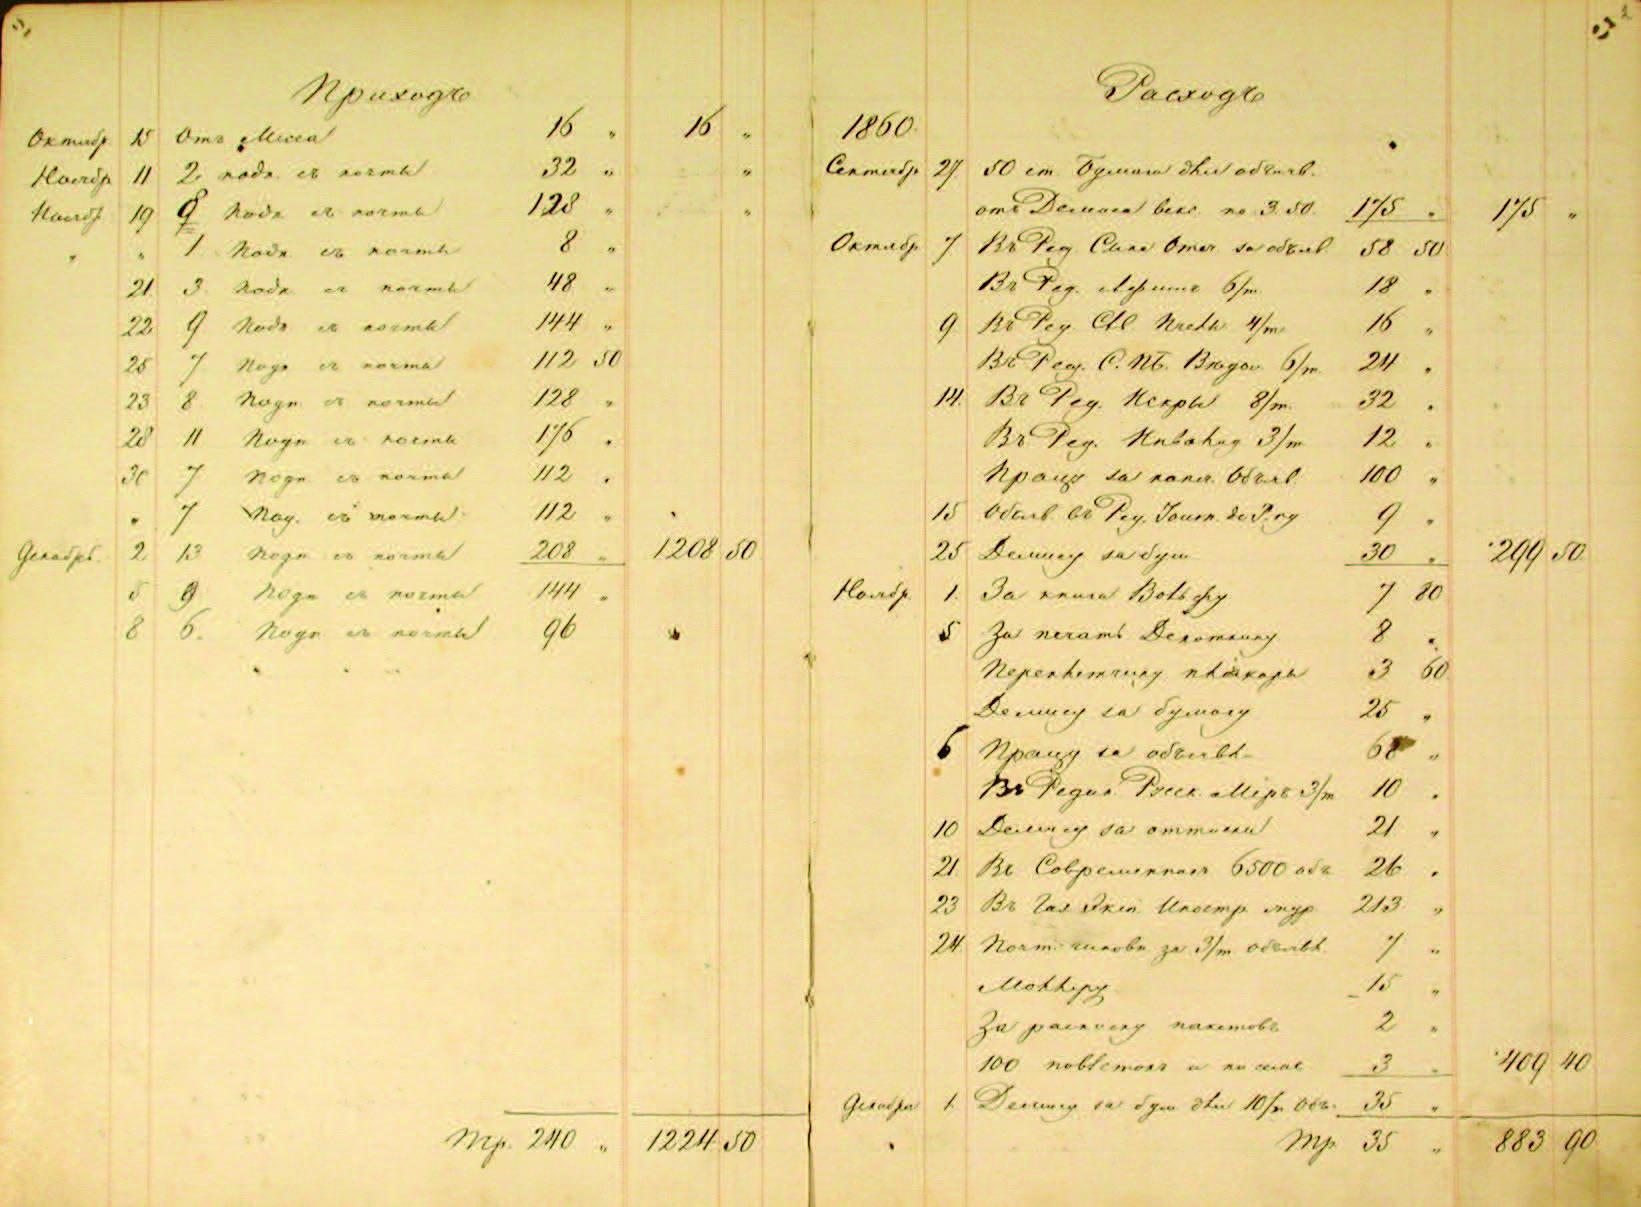 Приходъ
Октябр. 15 Отъ 16 „ 16 „
Ноябр 11 2 подп. съ почты 32 „ „
Ноябр 19 8 подп съ почты 128 „ „
„ „ 1 подп съ почты 8 „
21 3 подп съ почты 48 „
22 9 подп съ почты 144 „
25 7 подп съ почты 112 50
23 8 подп съ почты 128 „
28 11 подп съ почты 176 „
30 7 подп съ почты 112 „
„ 7 под. съ почты 112 „
Декабрь. 2 13 подп съ почты 208 „ 1208 50
5 9 подп съ почты 144 „
8 6. подп съ почты 96
Тр. 240 „ 1224 50
Расходъ
1860.
Сентябр 27 50 ст. Бумаги для объявл.
отъ по 3.50. 175 „ 175 „
Октябр 7 Въ Ред. Сына Отеч. за объяв. 58 50
Въ Ред. 6/т 18 „
9 Въ Ред. Сѣв. Пчелы 4/т 16 „
Въ Ред. С. Пб. Вѣдом. 6/т 24 „
14. Въ Ред. Искры 8/т. 32 „
Въ Ред. Инвалид 3/т 12 „
Працу за напеч. Объяв. 100 „
15 Объяв. въ Ред. Journ. de P. 9 „
25 за бум 30 „ 299 50
Ноябр. 1. За книги Вольфу 7 80
5 За печать 8 „
Переплетчику 3 60
за бумагу 25 „
6 Працу за объявл. 68 „
Въ Редак. Русск. Міръ 3/т 10 „
10 за оттиски 21 „
21. Въ Современникъ 6500 объ 26 „
23 Въ Газ Эксп. Иностр. 213 „
24 Почт. чиновн за 3/т объявл. 7 „
15 „
За разноску пакетовъ 2 „
100 повѣстокъ и 3 „ 409 40
Декабря 1. за бум для 10/т Объ. 35 „
Тр. 35 „ 883 90